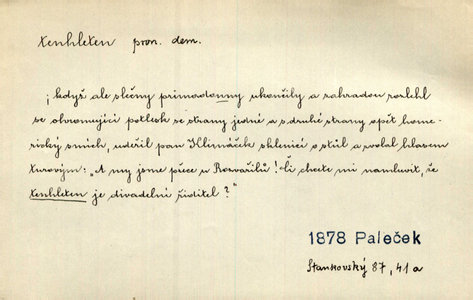 tenhleten pron. dem.
; když ale slečny primadonny ukončily a zahradou rozlehl
se ohromující potlesk se strany jedné a s druhé strany opět home-
rický smích, udeřil pan Klimáček sklenicí o stůl a volal hlasem
turovým: „A my jsme přece u Rozvařilů! Či chcete mi namluvit, že
tenhleten je divadelní ředitel?"
1878 Paleček
Stankovský 87, 41a